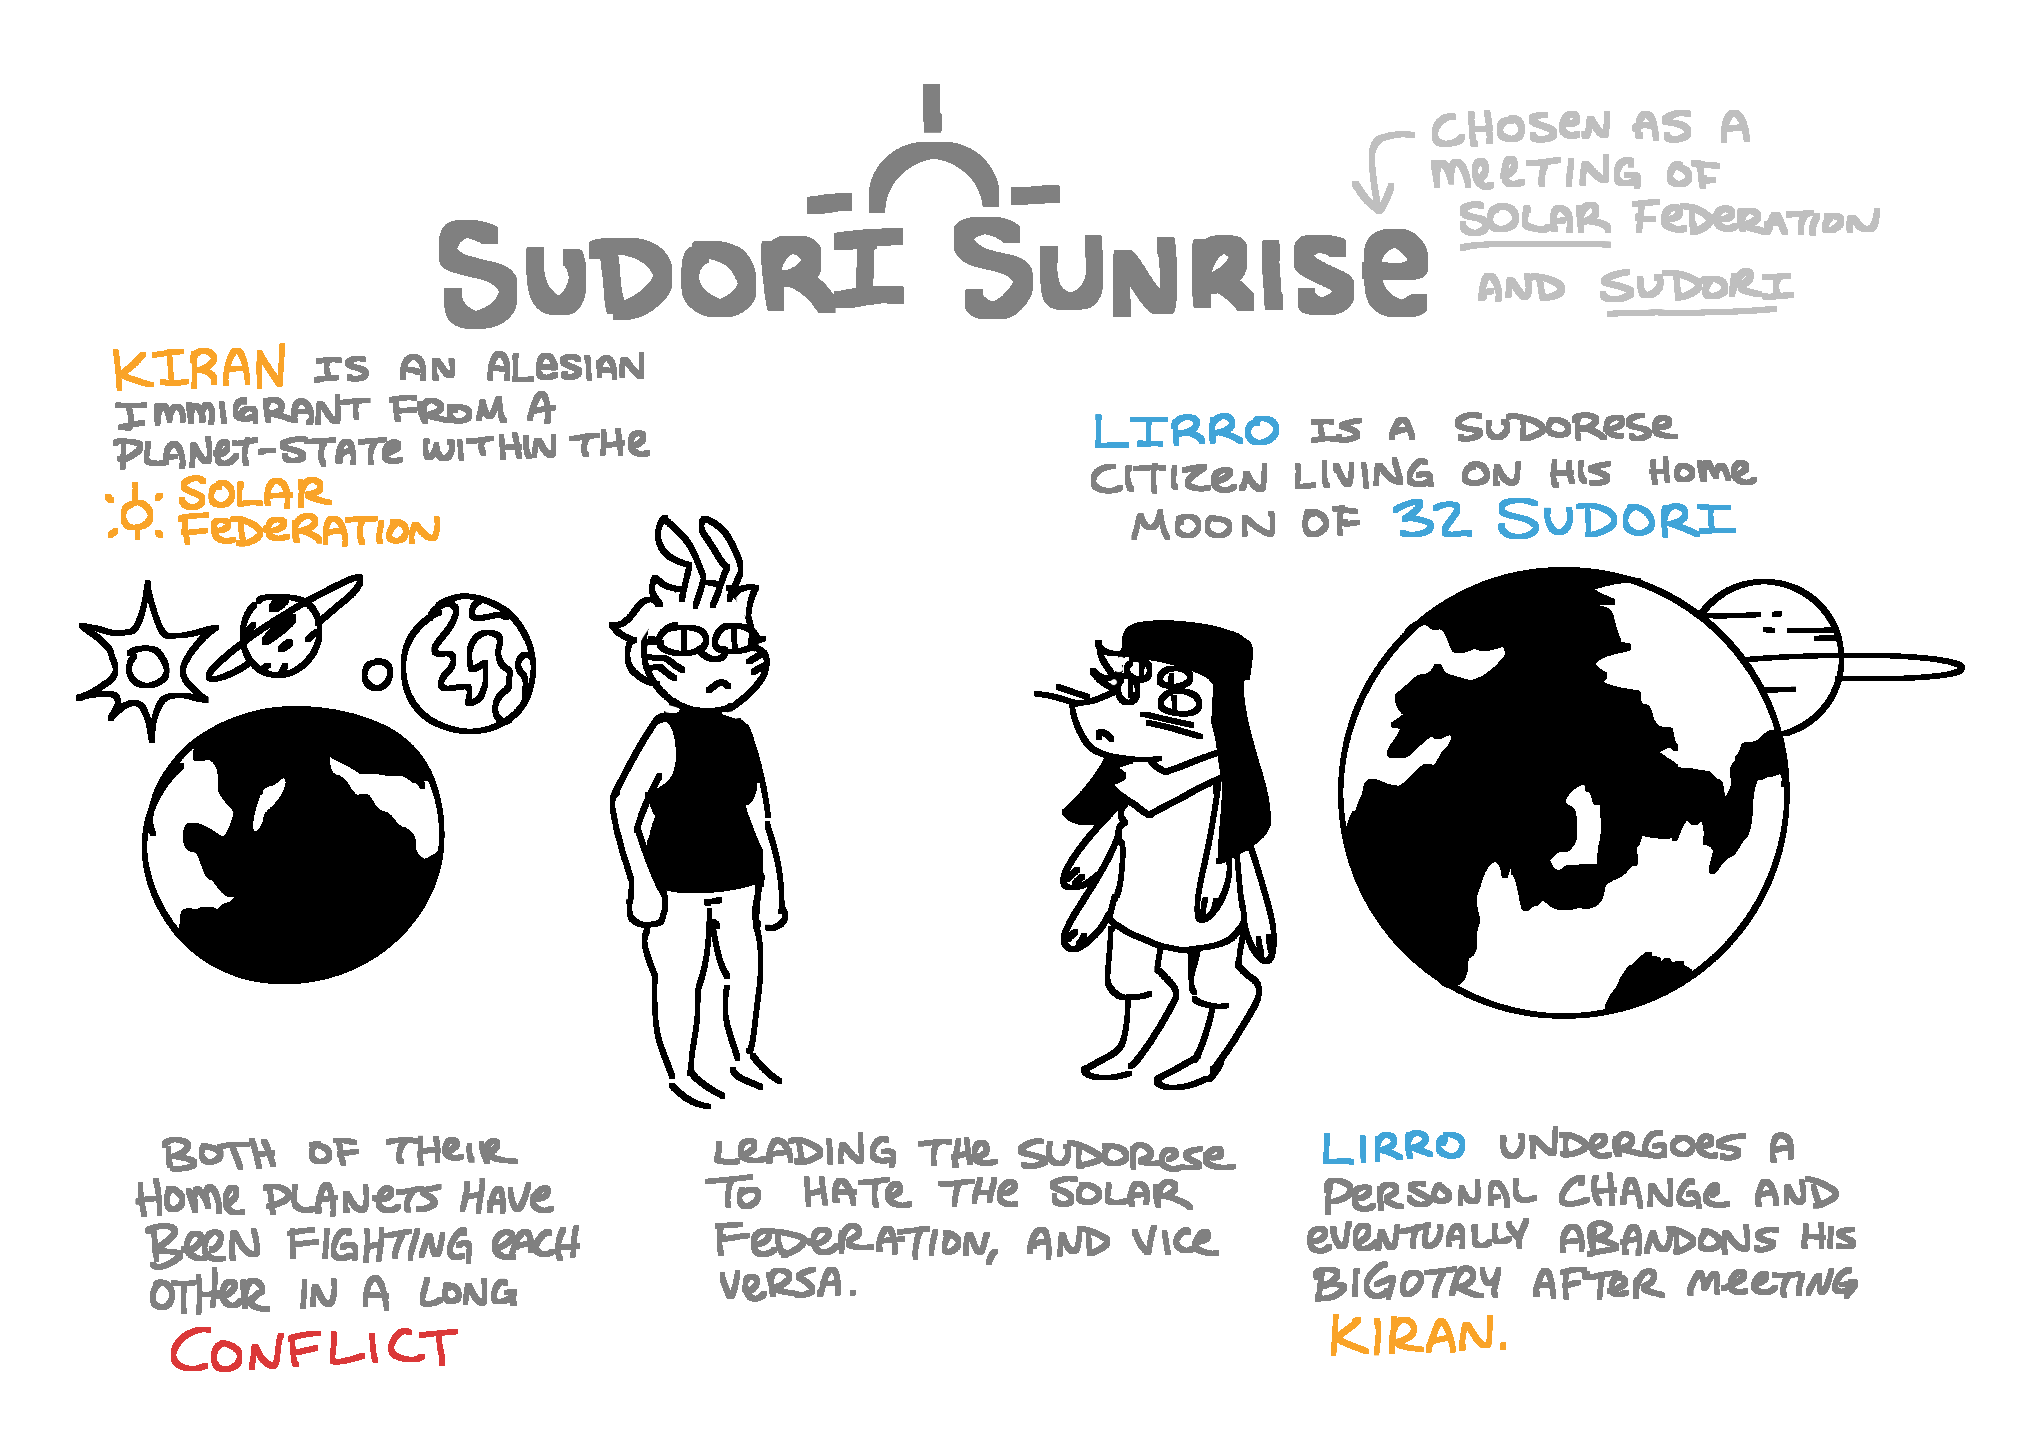 SUDORI SUNRISE
CHOSEN AS A
MEETING OF
SOLAR FEDERATION
AND SUDORI
KIRAN IS AN ALESIAN
IMMIGRANT FROM A
PLANET-STATE WITHIN THE
SOLAR
FEDERATION
LIRRO IS A SUDORESE
CITIZEN LIVING ON HIS HOME
MOON OF 32 SUDORI
BOTH OF THEIR
HOME PLANETS HAVE
BEEN FIGHTING EACH
OTHER IN A LONG
CONFLICT
LEADING THE SUDORESE
TO HATE THE SOLAR
FEDERATION, AND VICE
VERSA.
LIRRO UNDERGOES A
PERSONAL CHANGE AND
EVENTUALLY ABANDONS HIS
BIGOTRY AFTER MEETING
KIRAN.